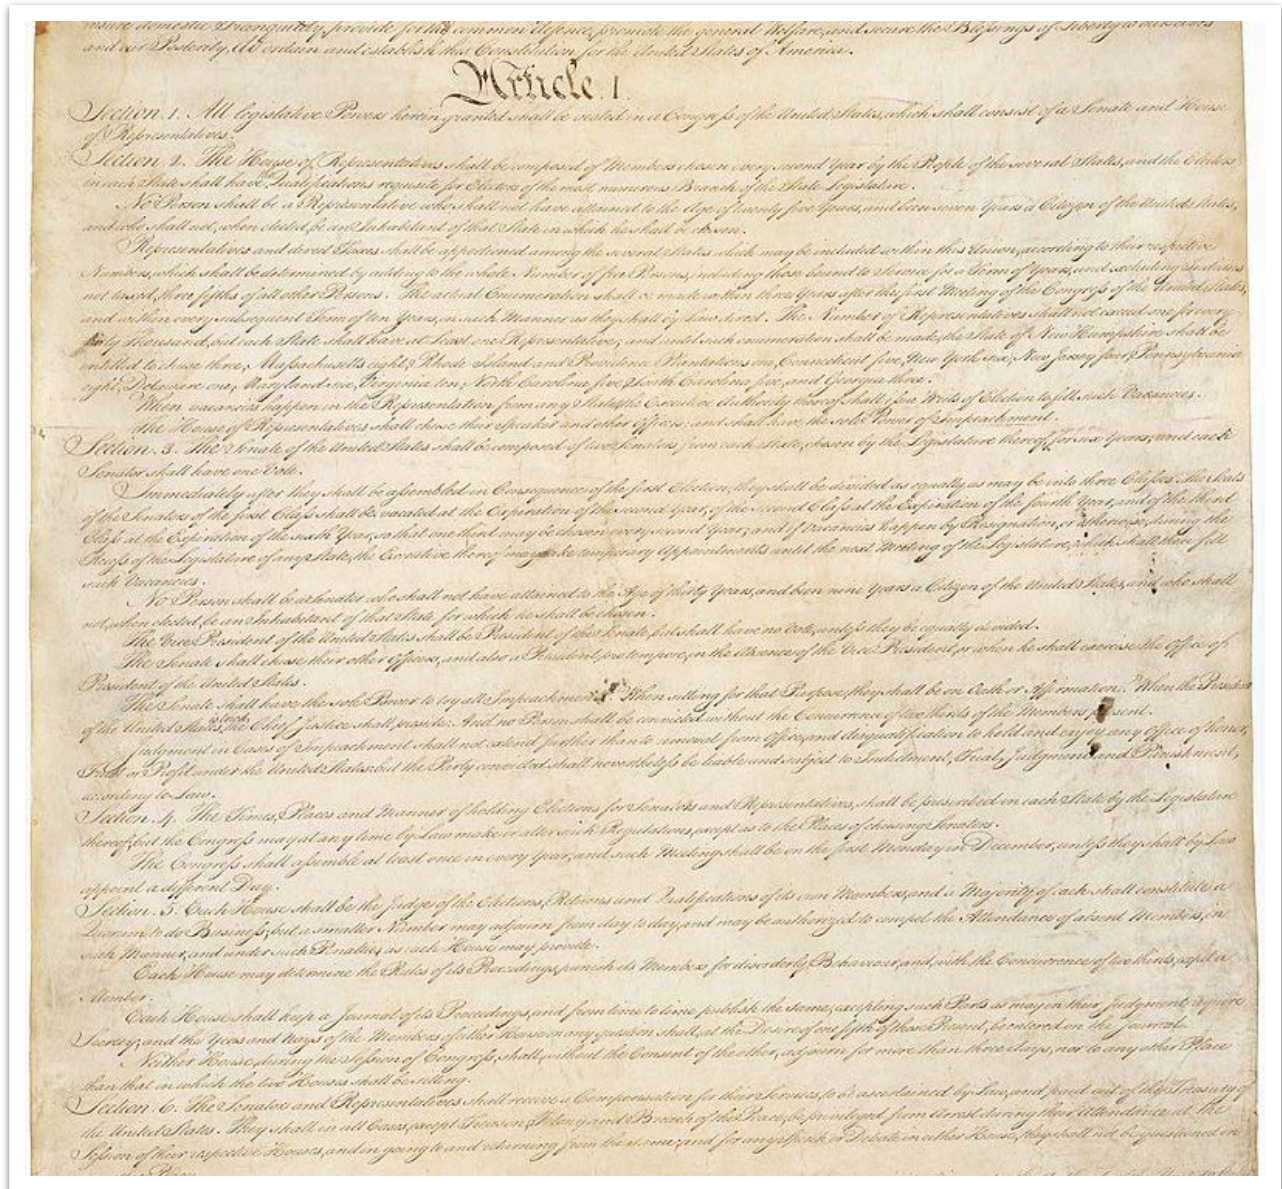 insure domestic Tranquility, provide for the common defence, promote the general Welfare, and secure the Blessings of Liberty to ourselves
and our Posterity, do ordain and establish this Constitution for the United States of America.
Article. I.
Section. 1. All legislative Powers herein granted shall be vested in a Congress of the United States, which shall consist of a Senate and House
of Representatives.
Section. 2. The House of Representatives shall be composed of Members chosen every second Year by the People of the several States, and the Electors
in each State shall have the Qualifications requisite for Electors of the most numerous Branch of the State Legislature.
No Person shall be a Representative who shall not have attained to the Age of twenty five Years, and been seven Years a Citizen of the United States,
and who shall not, when elected, be an Inhabitant of that State in which he shall be chosen.
Representatives and direct Taxes shall be apportioned among the several States which may be included within this Union, according to their respective
Numbers, which shall be determined by adding to the whole Number of free Persons, including those bound to Service for a Term of Years, and excluding Indians
not taxed, three fifths of all other Persons. The actual Enumeration shall be made within three Years after the first Meeting of the Congress of the United States,
and within every subsequent Term of ten Years, in such Manner as they shall by Law direct. The Number of Representatives shall not exceed one for every
thirty Thousand, but each State shall have at Least one Representative; and until such enumeration shall be made, the State of New Hampshire shall be
entitled to chuse three, Massachusetts eight, Rhode Island and Providence Plantations one, Connecticut five, New York six, New Jersey four, Pennsylvania
eight, Delaware one, Maryland six, Virginia ten, North Carolina five, South Carolina five, and Georgia three.
When vacancies happen in the Representation from any State, the Executive Authority thereof shall issue Writs of Election to fill such Vacancies.
The House of Representatives shall chuse their Speaker and other Officers; and shall have the sole Power of Impeachment.
Section. 3. The Senate of the United States shall be composed of two Senators from each State, chosen by the Legislature thereof, for six Years; and each
Senator shall have one Vote.
Immediately after they shall be assembled in Consequence of the first Election, they shall be divided as equally as may be into three Classes. The Seats
of the Senators of the first Class shall be vacated at the Expiration of the second Year, of the second Class at the Expiration of the fourth Year, and of the third
Class at the Expiration of the sixth Year, so that one third may be chosen every second Year; and if Vacancies happen by Resignation, or otherwise, during the
Recess of the Legislature of any State, the Executive thereof may make temporary Appointments until the next Meeting of the Legislature, which shall then fill
such Vacancies.
No Person shall be a Senator who shall not have attained to the Age of thirty Years, and been nine Years a Citizen of the United States, and who shall
not, when elected, be an Inhabitant of that State for which he shall be chosen.
The Vice President of the United States shall be President of the Senate, but shall have no Vote, unless they be equally divided.
The Senate shall chuse their other Officers, and also a President pro tempore, in the Absence of the Vice President, or when he shall exercise the Office of
President of the United States.
The Senate shall have the sole Power to try all Impeachments. When sitting for that Purpose, they shall be on Oath or Affirmation. When the President
of the United States is tried, the Chief Justice shall preside: And no Person shall be convicted without the Concurrence of two thirds of the Members present.
Judgment in Cases of Impeachment shall not extend further than to removal from Office, and disqualification to hold and enjoy any Office of honor,
Trust or Profit under the United States: but the Party convicted shall nevertheless be liable and subject to Indictment, Trial, Judgment and Punishment,
according to Law.
Section. 4. The Times, Places and Manner of holding Elections for Senators and Representatives, shall be prescribed in each State by the Legislature
thereof; but the Congress may at any time by Law make or alter such Regulations, except as to the Places of chusing Senators.
The Congress shall assemble at least once in every Year, and such Meeting shall be on the first Monday in December, unless they shall by Law
appoint a different Day.
Section. 5. Each House shall be the Judge of the Elections, Returns and Qualifications of its own Members, and a Majority of each shall constitute a
Quorum to do Business; but a smaller Number may adjourn from day to day, and may be authorized to compel the Attendance of absent Members, in
such Manner, and under such Penalties as each House may provide.
Each House may determine the Rules of its Proceedings, punish its Members for disorderly Behaviour, and, with the Concurrence of two thirds, expel a
Member.
Each House shall keep a Journal of its Proceedings, and from time to time publish the same, excepting such Parts as may in their Judgment require
Secrecy; and the Yeas and Nays of the Members of either House on any question shall, at the Desire of one fifth of those Present, be entered on the Journal.
Neither House, during the Session of Congress, shall, without the Consent of the other, adjourn for more than three days, nor to any other Place
than that in which the two Houses shall be sitting.
Section. 6. The Senators and Representatives shall receive a Compensation for their Services, to be ascertained by Law, and paid out of the Treasury of
the United States. They shall in all Cases, except Treason, Felony and Breach of the Peace, be privileged from Arrest during their Attendance at the
Session of their respective Houses, and in going to and returning from the same; and for any Speech or Debate in either House, they shall not be questioned in